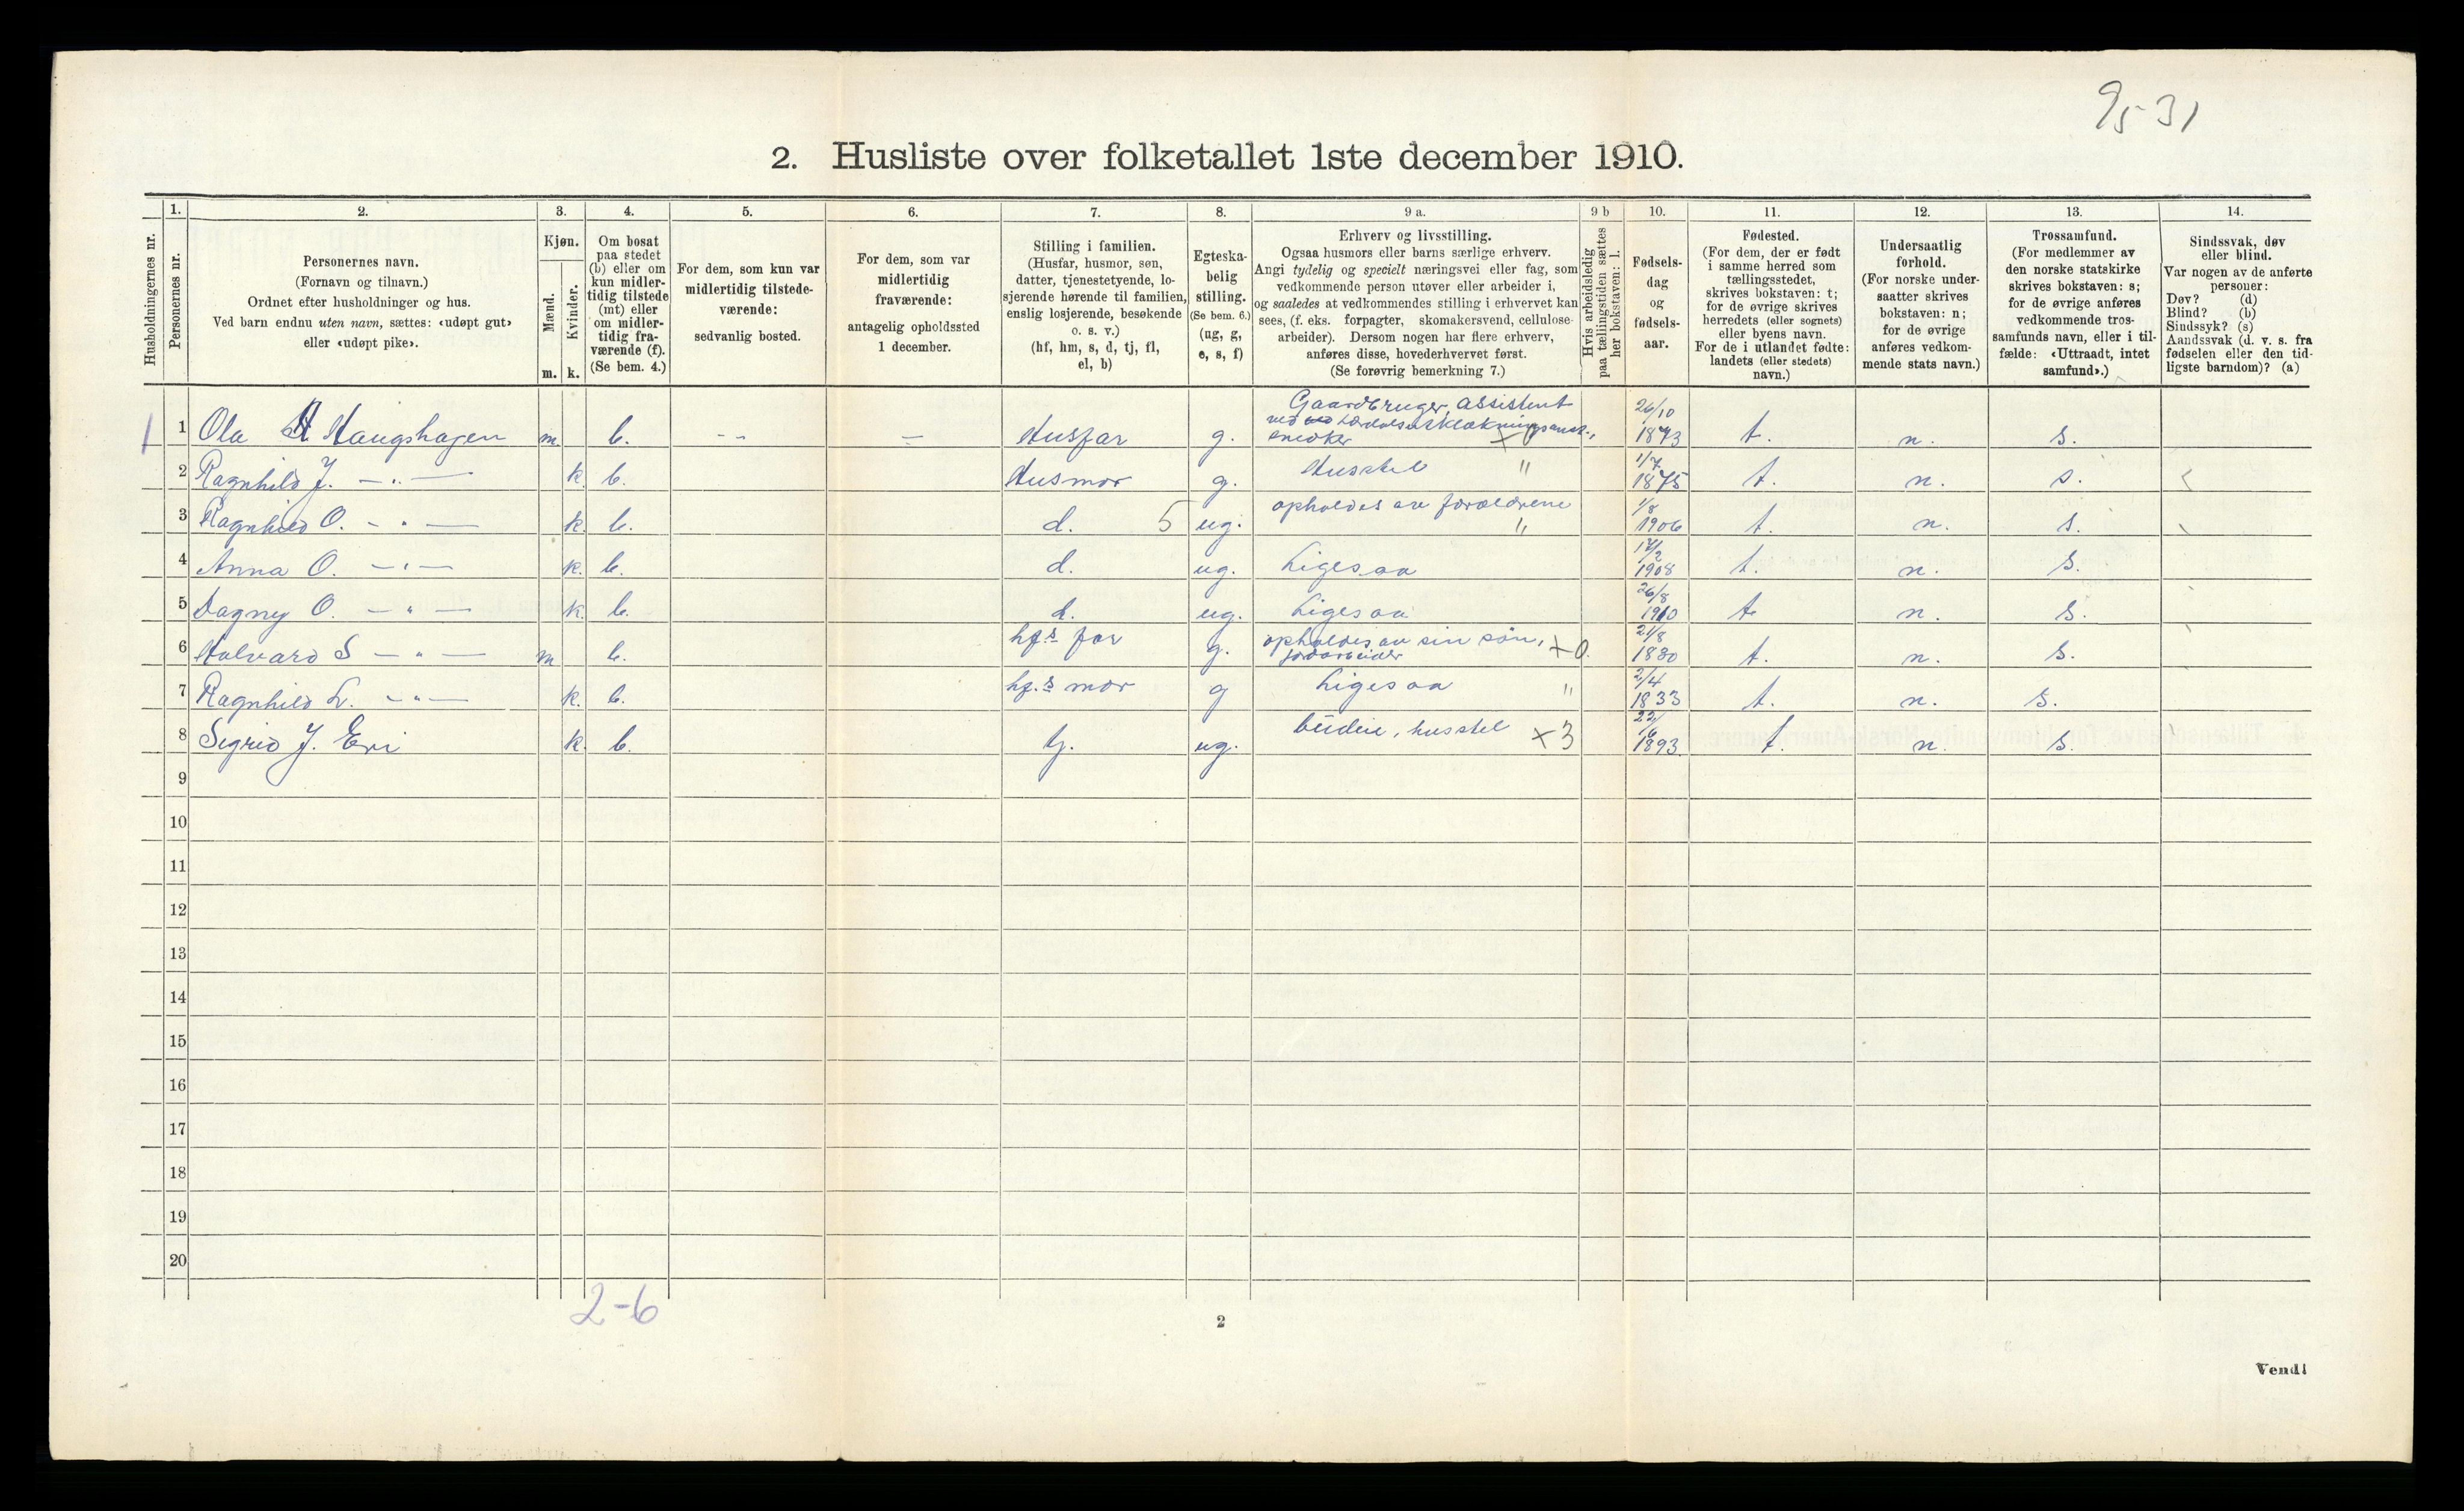 95-31
2. Husliste over folketallet 1ste december 1910.
Husholdningernes nr.
1.
Personernes nr.
2.
Personernes navn.
(Fornavn og tilnavn.)
Ordnet efter husholdninger og hus.
Ved barn endnu uten navn, sættes: «udøpt gut»
eller «udøpt pike».
3.
Kjøn.
Mænd.
Kvinder.
m. k.
4.
Om bosat
paa stedet
(b) eller om
kun midler-
tidig tilstede
(mt) eller
om midler-
tidig fra-
værende (f).
(Se bem. 4.)
5.
For dem, som kun var
midlertidig tilstede-
værende:
sedvanlig bosted.
6.
For dem, som var
midlertidig
fraværende:
antagelig opholdssted
1 december.
7.
Stilling i familien.
(Husfar, husmor, søn,
datter, tjenestetyende, lo-
sjerende hørende til familien,
enslig losjerende, besøkende
o. s. v.)
(hf, hm, s, d, tj, fl,
el, b)
8.
Egteska-
belig
stilling.
(Se bem. 6.)
(ug, g,
e, s, f)
9 a.
Erhverv og livsstilling.
Ogsaa husmors eller barns særlige erhverv.
Angi tydelig og specielt næringsvei eller fag, som
vedkommende person utøver eller arbeider i,
og saaledes at vedkommendes stilling i erhvervet kan
sees, (f. eks. forpagter, skomakersvend, cellulose-
arbeider). Dersom nogen har flere erhverv,
anføres disse, hovederhvervet først.
(Se forøvrig bemerkning 7.)
9 b
Hvis arbeidsledig
paa tællingstiden sættes
her bokstaven: l.
10.
Fødsels-
dag
og
fødsels-
aar.
11.
Fødested.
(For dem, der er født
i samme herred som
tællingsstedet,
skrives bokstaven: t;
for de øvrige skrives
herredets (eller sognets)
eller byens navn.
For de i utlandet fødte:
landets (eller stedets)
navn.)
12.
Undersaatlig
forhold.
(For norske under-
saatter skrives
bokstaven: n;
for de øvrige
anføres vedkom-
mende stats navn.)
13.
Trossamfund.
(For medlemmer av
den norske statskirke
skrives bokstaven: s;
for de øvrige anføres
vedkommende tros-
samfunds navn, eller i til-
fælde: «Uttraadt, intet
samfund».)
14.
Sindssvak, døv
eller blind.
Var nogen av de anførte
personer:
Døv? (d)
Blind? (b)
Sindssyk? (s)
Aandssvak (d. v. s. fra
fødselen eller den tid-
ligste barndom)? (a)
Gaardbruger, assistent
1 1 Ola H Haugshagen m b. - - - Husfar g. snedker 26/10 1873 t. n. s.
2 Ragnhild J. - " - k b. Husmor g. Husstel " 1/7 1875 t. n. s.
3 Ragnhild O. - " - k. b. d. 5 ug. opholdes av forældrene " 1/8 1906 t. n. s.
4 Anna O. - " - k. b. d. ug. Ligesaa 17/2 1908 t. n. s.
5 Dagny O. - " - k. b. d. ug. Ligesaa 26/8 1910 t. n. s.
6 Halvard S - " - m b. hf.s far g. opholdes av sin søn, jordarbeider x0 21/8 1830 t. n. s.
7 Ragnhild L. - " - k. b. hf.s mor g Ligesaa " 2/4 1833 t. n. s.
8 Sigrid J. Eri k. b. tj. ug. budeie, husstel x3 22/6 1893 t. n. s.
9
10
11
12
13
14
15
16
17
18
19
20
2-6
2
Vend!